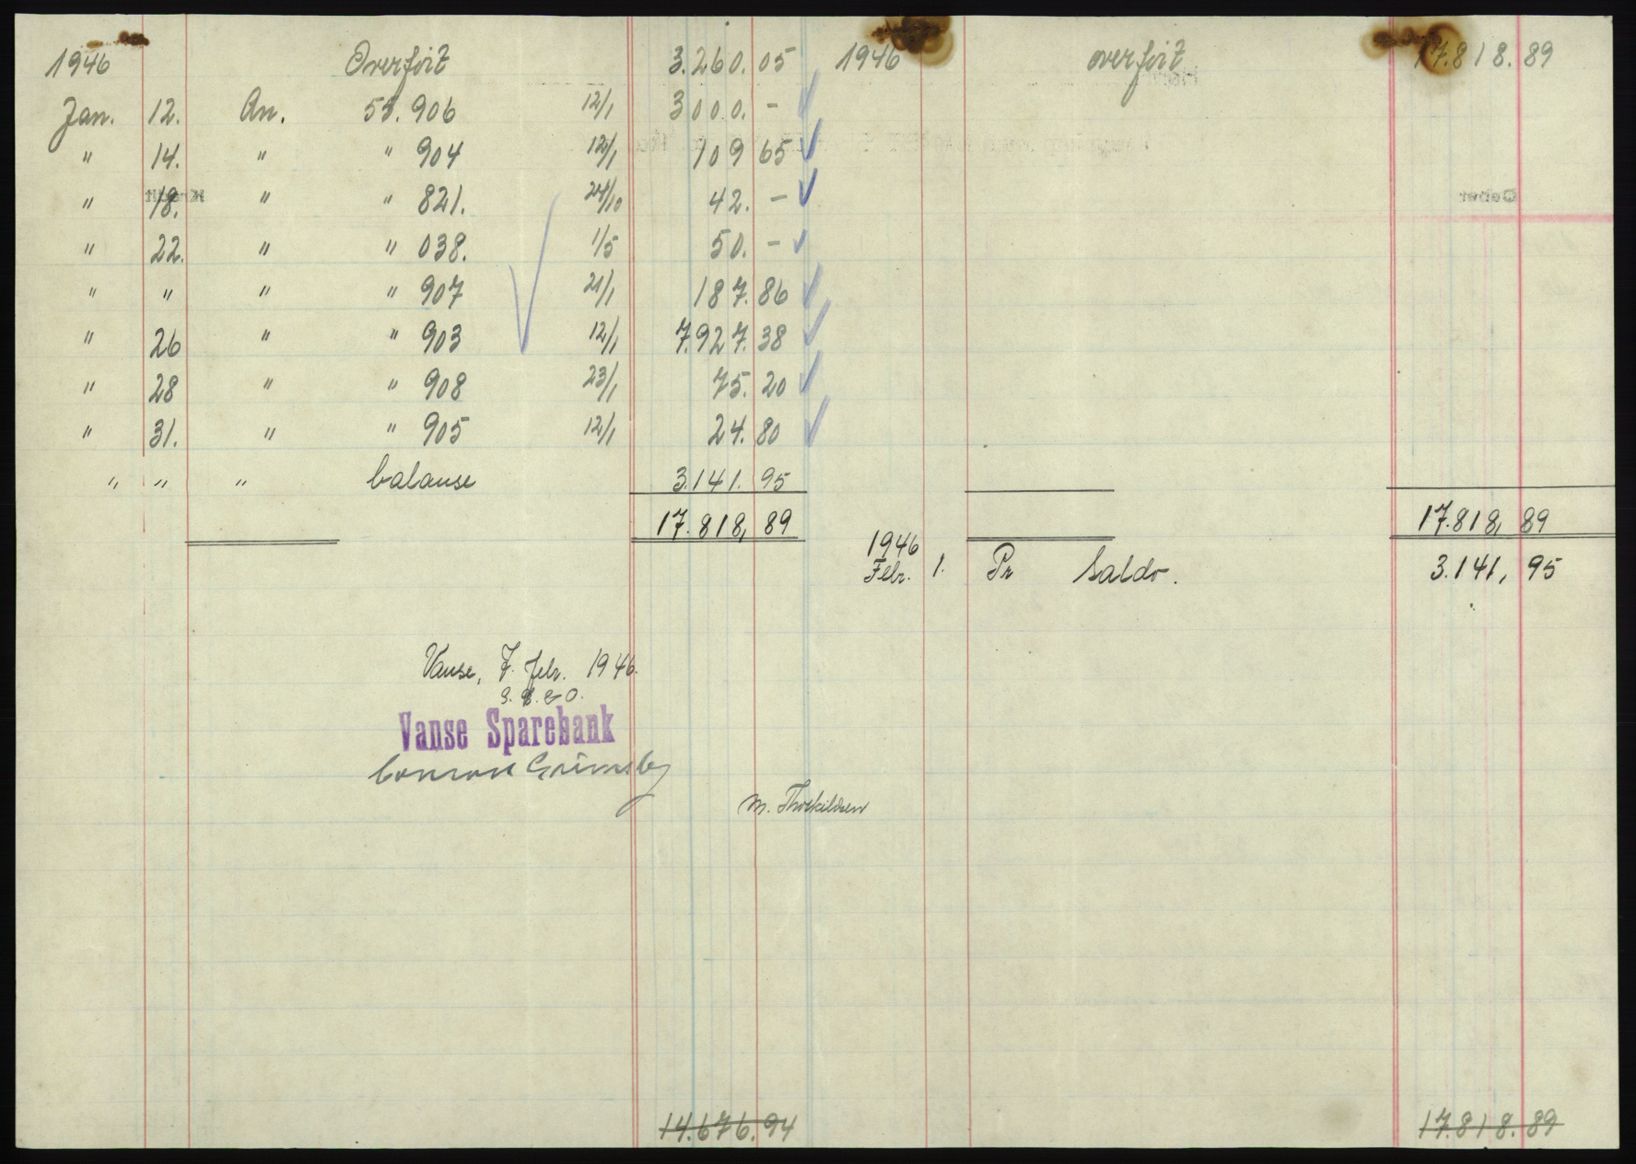 1946 Overført 3.260.05
Jan. 12. An. 55.906 12/1 3000. -
" 14. " " 904 12/1 109 65
" 18. " " 821. 24/10 42. -
" 22. " " 038. 1/5 50. -
" " " " 907 21/1 187.86
" 26 " " 903 12/1 7.927.38
" 28 " " 908 23/1 75.20
" 31. " " 905 12/1 24.80
" " " balanse 3.141.95
17.818,89
Vanse, 7. febr. 1946.
Vanse Sparebank
Grimsby
M. Thorkildsen
14.676.94
1946 overført 17.818.89
Debet
17.818,89
1946
Febr. 1. Pr Saldo. 3.141,95
17.818.89